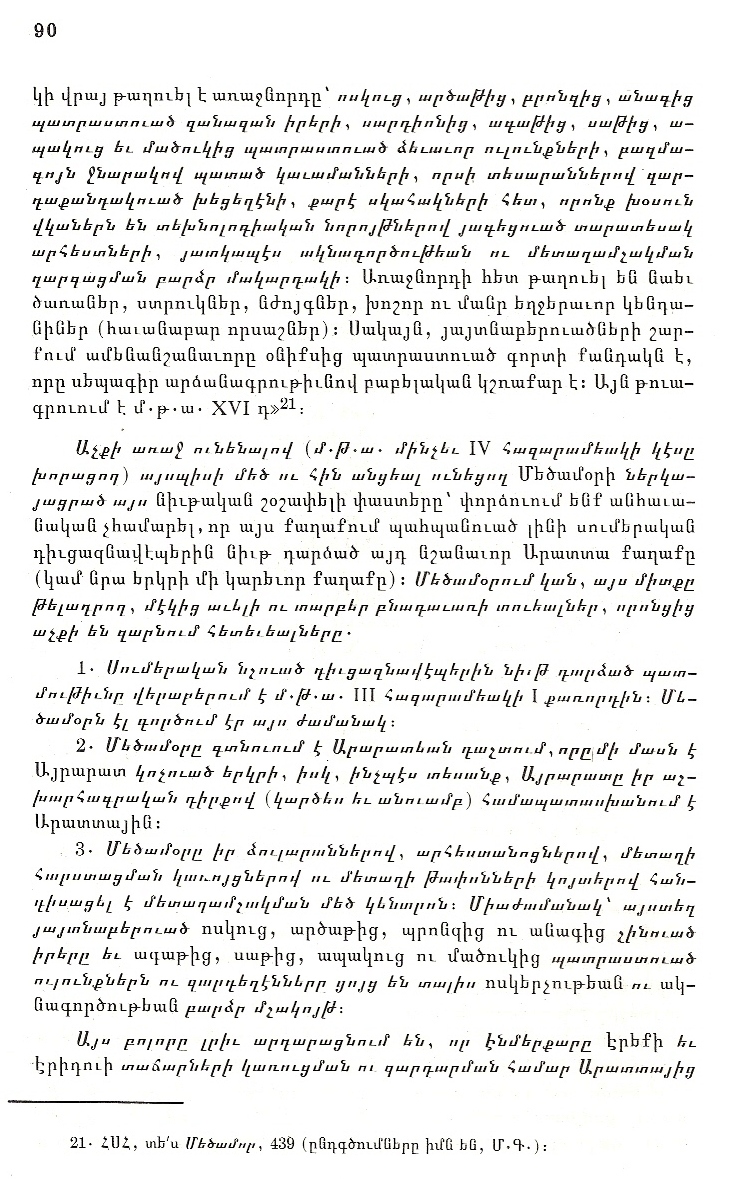 90
կի վրայ թաղուել է առաջնորդը՝ ոսկուց, արծաթից, բրոնզից, անագից
պատրաստուած զանազան իրերի, սարդիոնից, ագաթից, սաթից, ա-
պակուց եւ մածուկից պատրաստուած ձեւաւոր ուլունքների, բազմա-
գոյն ջնարակով պատած կաւամանների, որսի տեսարաններով զար-
դաքանդակուած խեցեղէնի, քարէ սկահակների հետ, որոնք խօսուն
վկաներն են տեխնոլոգիական նորոյթներով յագեցուած տարատեսակ
արհեստների, յատկապէս ակնագործութեան ու մետաղամշակման
զարգացման բարձր մակարդակի։ Առաջնորդի հետ թաղուել են նաեւ
ծառաներ, ստրուկներ, նժոյգներ, խոշոր ու մանր եղջերաւոր կենդա-
նիներ (հաւանաբար որսաշներ)։ Սակայն, յայտնաբերուածների շար-
քում ամենանշանաւորը օնիքսից պատրաստուած գորտի քանդակն է,
որը սեպագիր արձանագրութիւնով բաբելական կշռաքար է։ Այն թուա-
գրուում է մ.թ.ա. XVI դ»21։
Աչքի առաջ ունենալով (մ.թ.ա. մինչեւ IV հազարամեակի կէսը
խորացող) այսպիսի մեծ ու հին անցեալ ունեցող Մեծամօրի ներկա-
յացրած այս նիւթական շօշափելի փաստերը՝ փորձուում ենք անհաւա-
նական չհամարել, որ այս քաղաքում պահպանուած լինի սումերական
դիւցազնավէպերին նիւթ դարձած այդ նշանաւոր Արատտա քաղաքը
(կամ նրա երկրի մի կարեւոր քաղաքը)։ Մեծամօրում կան, այս միտքը
թելադրող, մէկից աւելի ու տարբեր բնագաւառի տուեալներ, որոնցից
աչքի են զարնում հետեւեալները.
1. Սումերական նշուած դիւցազնավէպերին նիւթ դարձած պատ-
մութիւնը վերաբերում է մ.թ.ա. III հազարամեակի I քառորդին։ Մե-
ծամօրն էլ գործում էր այս ժամանակ։
2. Մեծամօրը գտնուում է Արարատեան դաշտում, որը մի մասն է
Այրարատ կոչուած երկրի, իսկ, ինչպէս տեսանք, Այրարատը իր աշ-
խարհագրական դիրքով (կարծես եւ անուամբ) համապատասխանում է
Արատտային։
3. Մեծամօրը իր ձուլարաններով, արհեստանոցներով, մետաղի
հարստացման կառոյցներով ու մետաղի թափոնների կոյտերով հան-
դիսացել է մետաղամշակման մեծ կենտրոն։ Միաժամանակ՝ այստեղ
յայտնաբերուած ոսկուց, արծաթից, պրոնզից ու անագից շինուած
իրերը եւ ագաթից, սաթից, ապակուց ու մածուկից պատրաստուած
ուլունքներն ու զարդեղէնները ցոյց են տալիս ոսկերչութեան ու ակ-
նագործութեան բարձր մշակոյթ։
Այս բոլորը լրիւ արդարացնում են, որ էնմերքարը էրեքի եւ
էրիդուի տաճարների կառուցման ու զարդարման համար Արատտայից
21. ՀՍՀ, տե՛ս Մեծամոր, 439 (ընդգծումները իմն են, Մ.Գ.)։